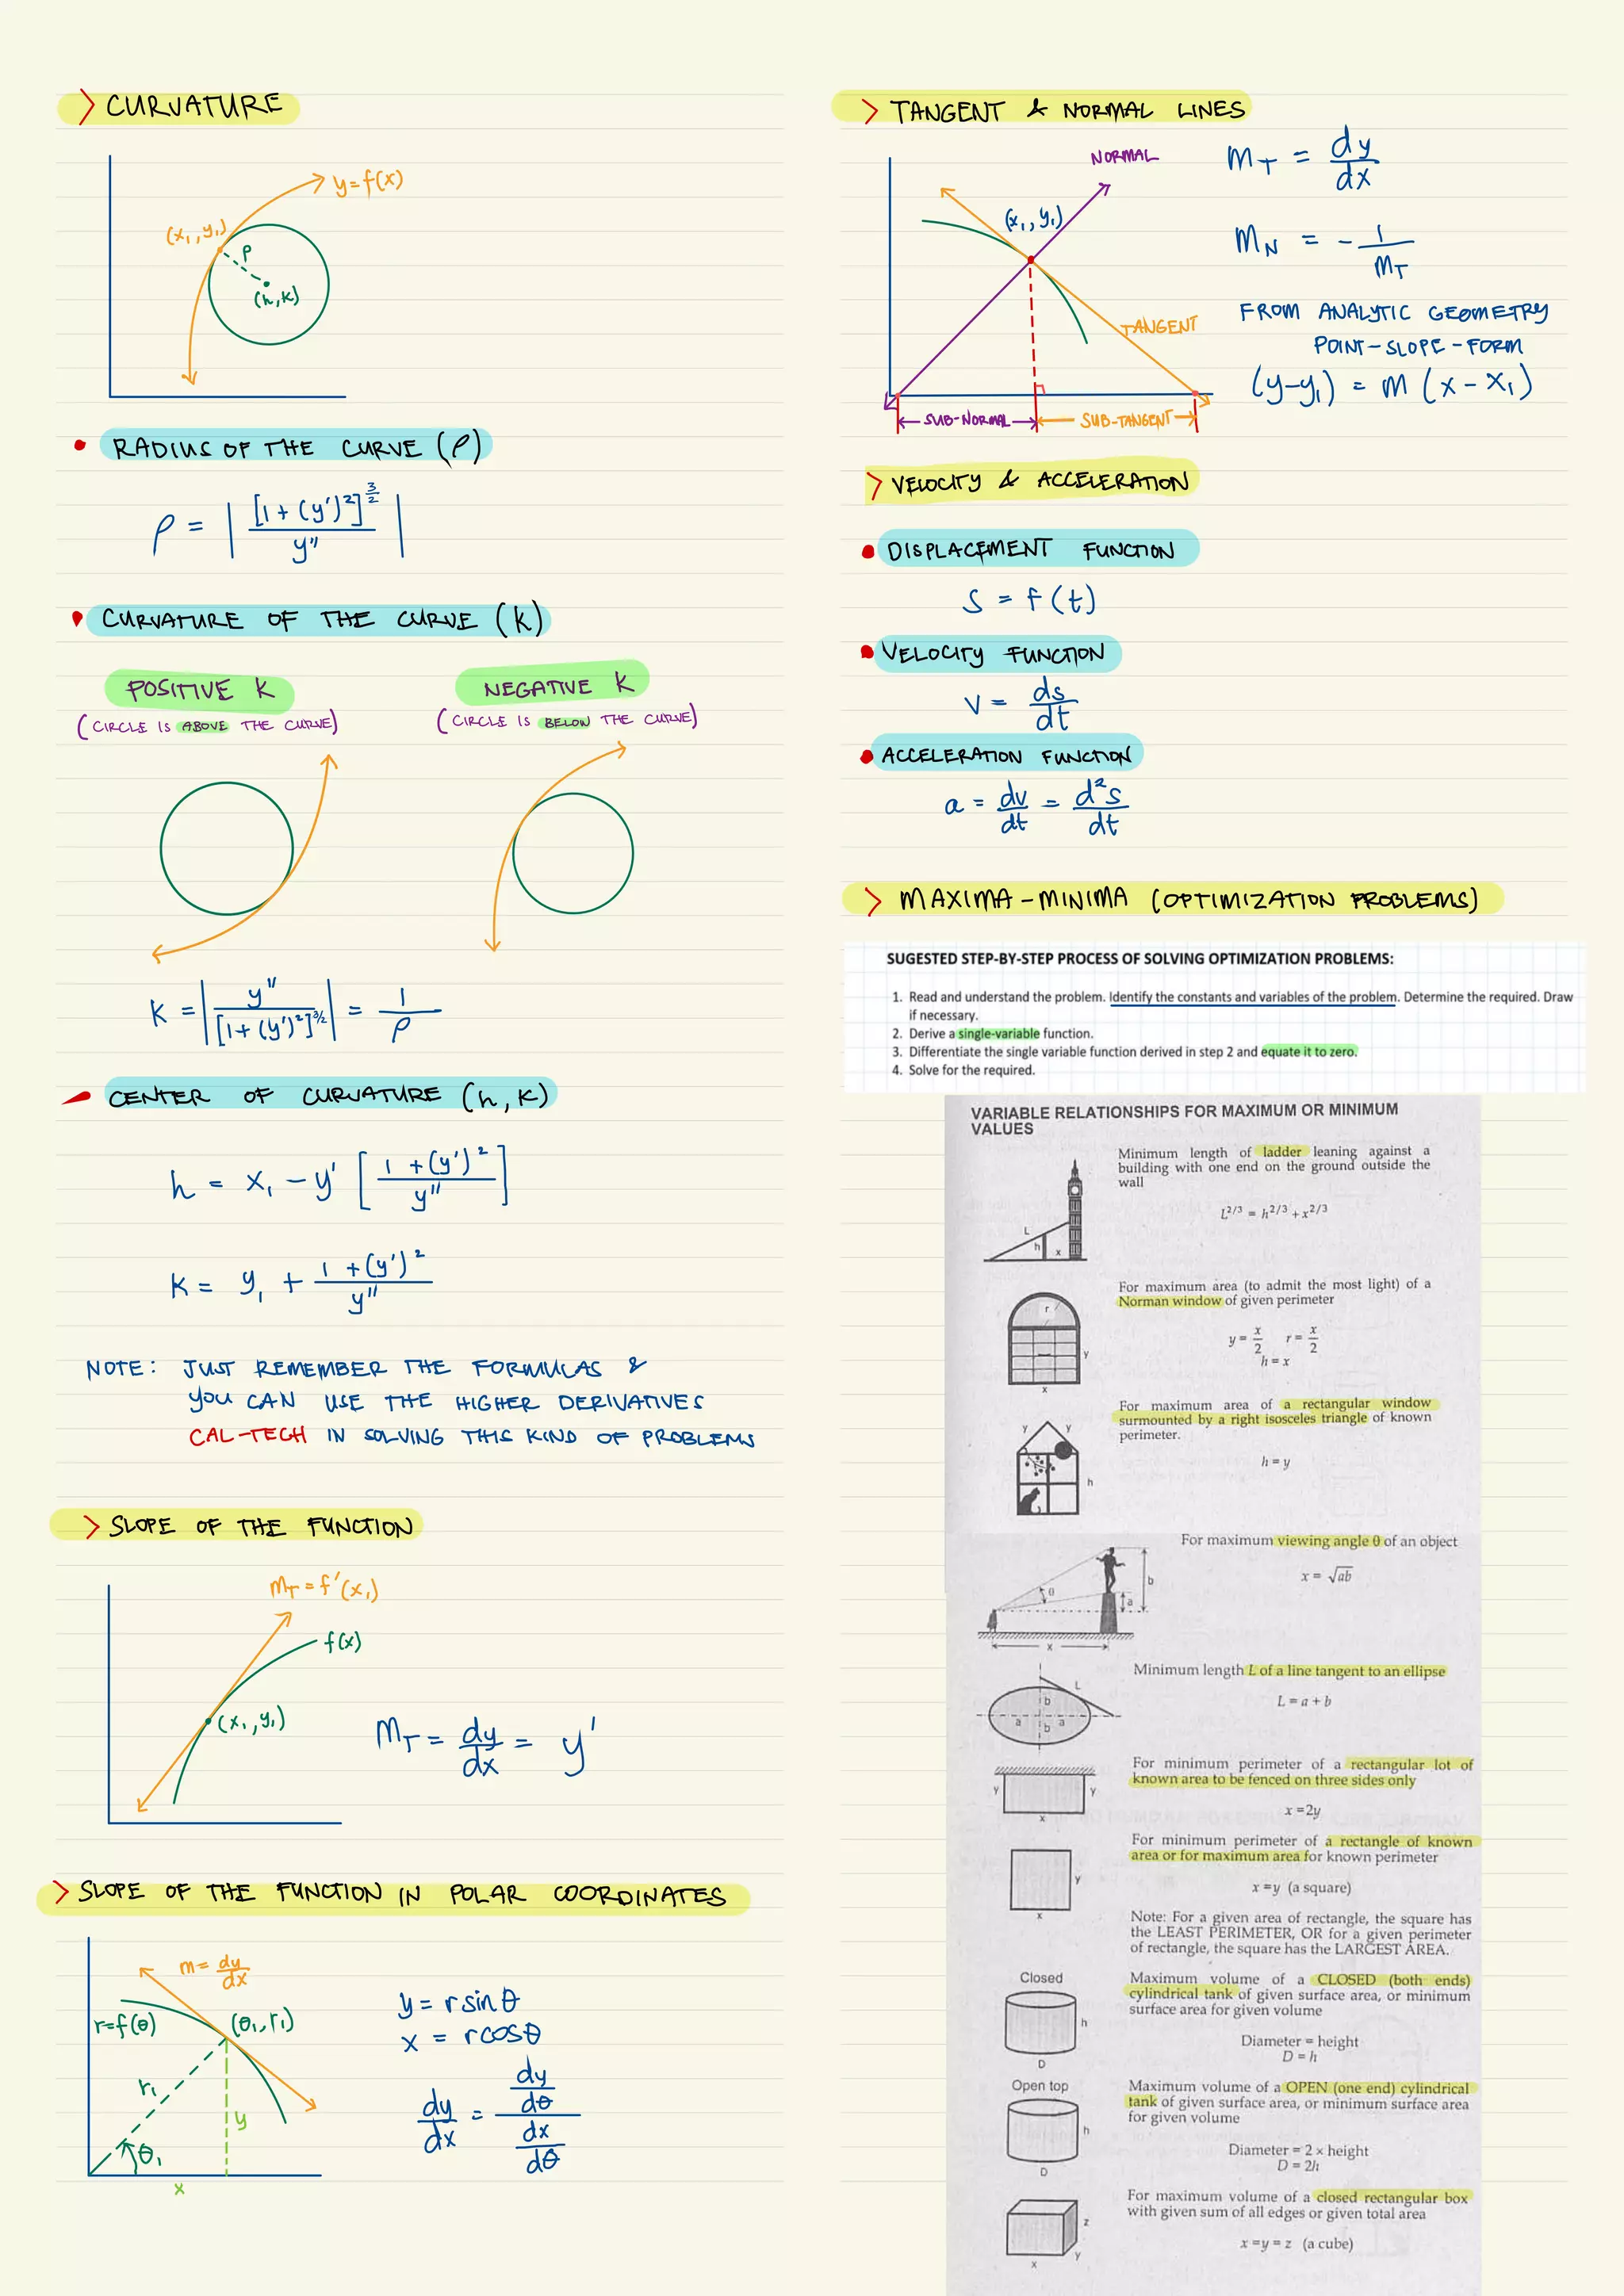 > CURVATURE
y=f(x)
(x₁,y₁)
ρ
(h,k)
• RADIUS OF THE CURVE (ρ)
ρ = | [1+(y')²]^(3/2) / y" |
• CURVATURE OF THE CURVE (K)
POSITIVE K
(CIRCLE IS ABOVE THE CURVE)
NEGATIVE K
(CIRCLE IS BELOW THE CURVE)
K = | y" / [1+(y')²]^(3/2) | = 1/ρ
CENTER OF CURVATURE (h, K)
h = x₁ - y' [ 1+(y')² / y" ]
K = y₁ + 1+(y')² / y"
NOTE: JUST REMEMBER THE FORMULAS &
YOU CAN USE THE HIGHER DERIVATIVES
CAL-TECH IN SOLVING THIS KIND OF PROBLEMS
> SLOPE OF THE FUNCTION
m_T = f'(x₁)
f(x)
(x₁,y₁)
m_T = dy/dx = y'
> SLOPE OF THE FUNCTION IN POLAR COORDINATES
m = dy/dx
r=f(θ)
(θ₁,r₁)
r₁
y
θ₁
x
y = r sin θ
x = r cos θ
dy/dx = (dy/dθ) / (dx/dθ)
> TANGENT & NORMAL LINES
NORMAL
(x₁,y₁)
TANGENT
SUB-NORMAL
SUB-TANGENT
m_T = dy/dx
m_N = - 1/m_T
FROM ANALYTIC GEOMETRY
POINT-SLOPE-FORM
(y-y₁) = m (x-x₁)
> VELOCITY & ACCELERATION
• DISPLACEMENT FUNCTION
S = f(t)
• VELOCITY FUNCTION
V = ds/dt
• ACCELERATION FUNCTION
a = dv/dt = d²s/dt
> MAXIMA-MINIMA (OPTIMIZATION PROBLEMS)
SUGESTED STEP-BY-STEP PROCESS OF SOLVING OPTIMIZATION PROBLEMS:
1. Read and understand the problem. Identify the constants and variables of the problem. Determine the required. Draw
if necessary.
2. Derive a single-variable function.
3. Differentiate the single variable function derived in step 2 and equate it to zero.
4. Solve for the required.
VARIABLE RELATIONSHIPS FOR MAXIMUM OR MINIMUM
VALUES
Minimum length of ladder leaning against a
building with one end on the ground outside the
wall
L^(2/3) = h^(2/3) + x^(2/3)
L
h
x
For maximum area (to admit the most light) of a
Norman window of given perimeter
y = x/2 r = x/2
h = x
r
y
x
For maximum area of a rectangular window
surmounted by a right isosceles triangle of known
perimeter.
h = y
y
y
h
For maximum viewing angle θ of an object
x = √ab
θ
b
a
x
Minimum length L of a line tangent to an ellipse
L = a + b
L
b
a
a
b
For minimum perimeter of a rectangular lot of
known area to be fenced on three sides only
x =2y
y
y
x
For minimum perimeter of a rectangle of known
area or for maximum area for known perimeter
x =y (a square)
y
x
Note: For a given area of rectangle, the square has
the LEAST PERIMETER, OR for a given perimeter
of rectangle, the square has the LARGEST AREA.
Closed
h
D
Maximum volume of a CLOSED (both ends)
cylindrical tank of given surface area, or minimum
surface area for given volume
Diameter = height
D = h
Open top
h
D
Maximum volume of a OPEN (one end) cylindrical
tank of given surface area, or minimum surface area
for given volume
Diameter = 2 × height
D = 2h
For maximum volume of a closed rectangular box
with given sum of all edges or given total area
x =y = z (a cube)
z
x
y